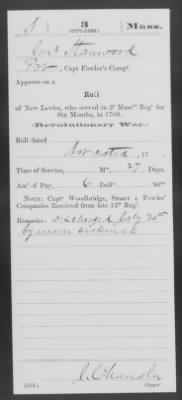 S | 3 | Mass.
(FIFTY-THREE.)
Jona Stanwood
Pvt, Capt Fowles's Compy.
Appears on a
Roll
of New Levies, who served in 3d Massts Regt for
Six Months, in 1780.
(Revolutionary War.)
Roll dated
Not dated, 17
Time of Service, Ms, 27 Days.
Amt of Pay, 6 Dolls 90ths
NOTE: Capts Woodbridge, Smart & Fowles'
Companies Received from late 13th Regt.
Remarks: Discharged July 30th
by reason sickness
J. C. Chandler
Copyist.